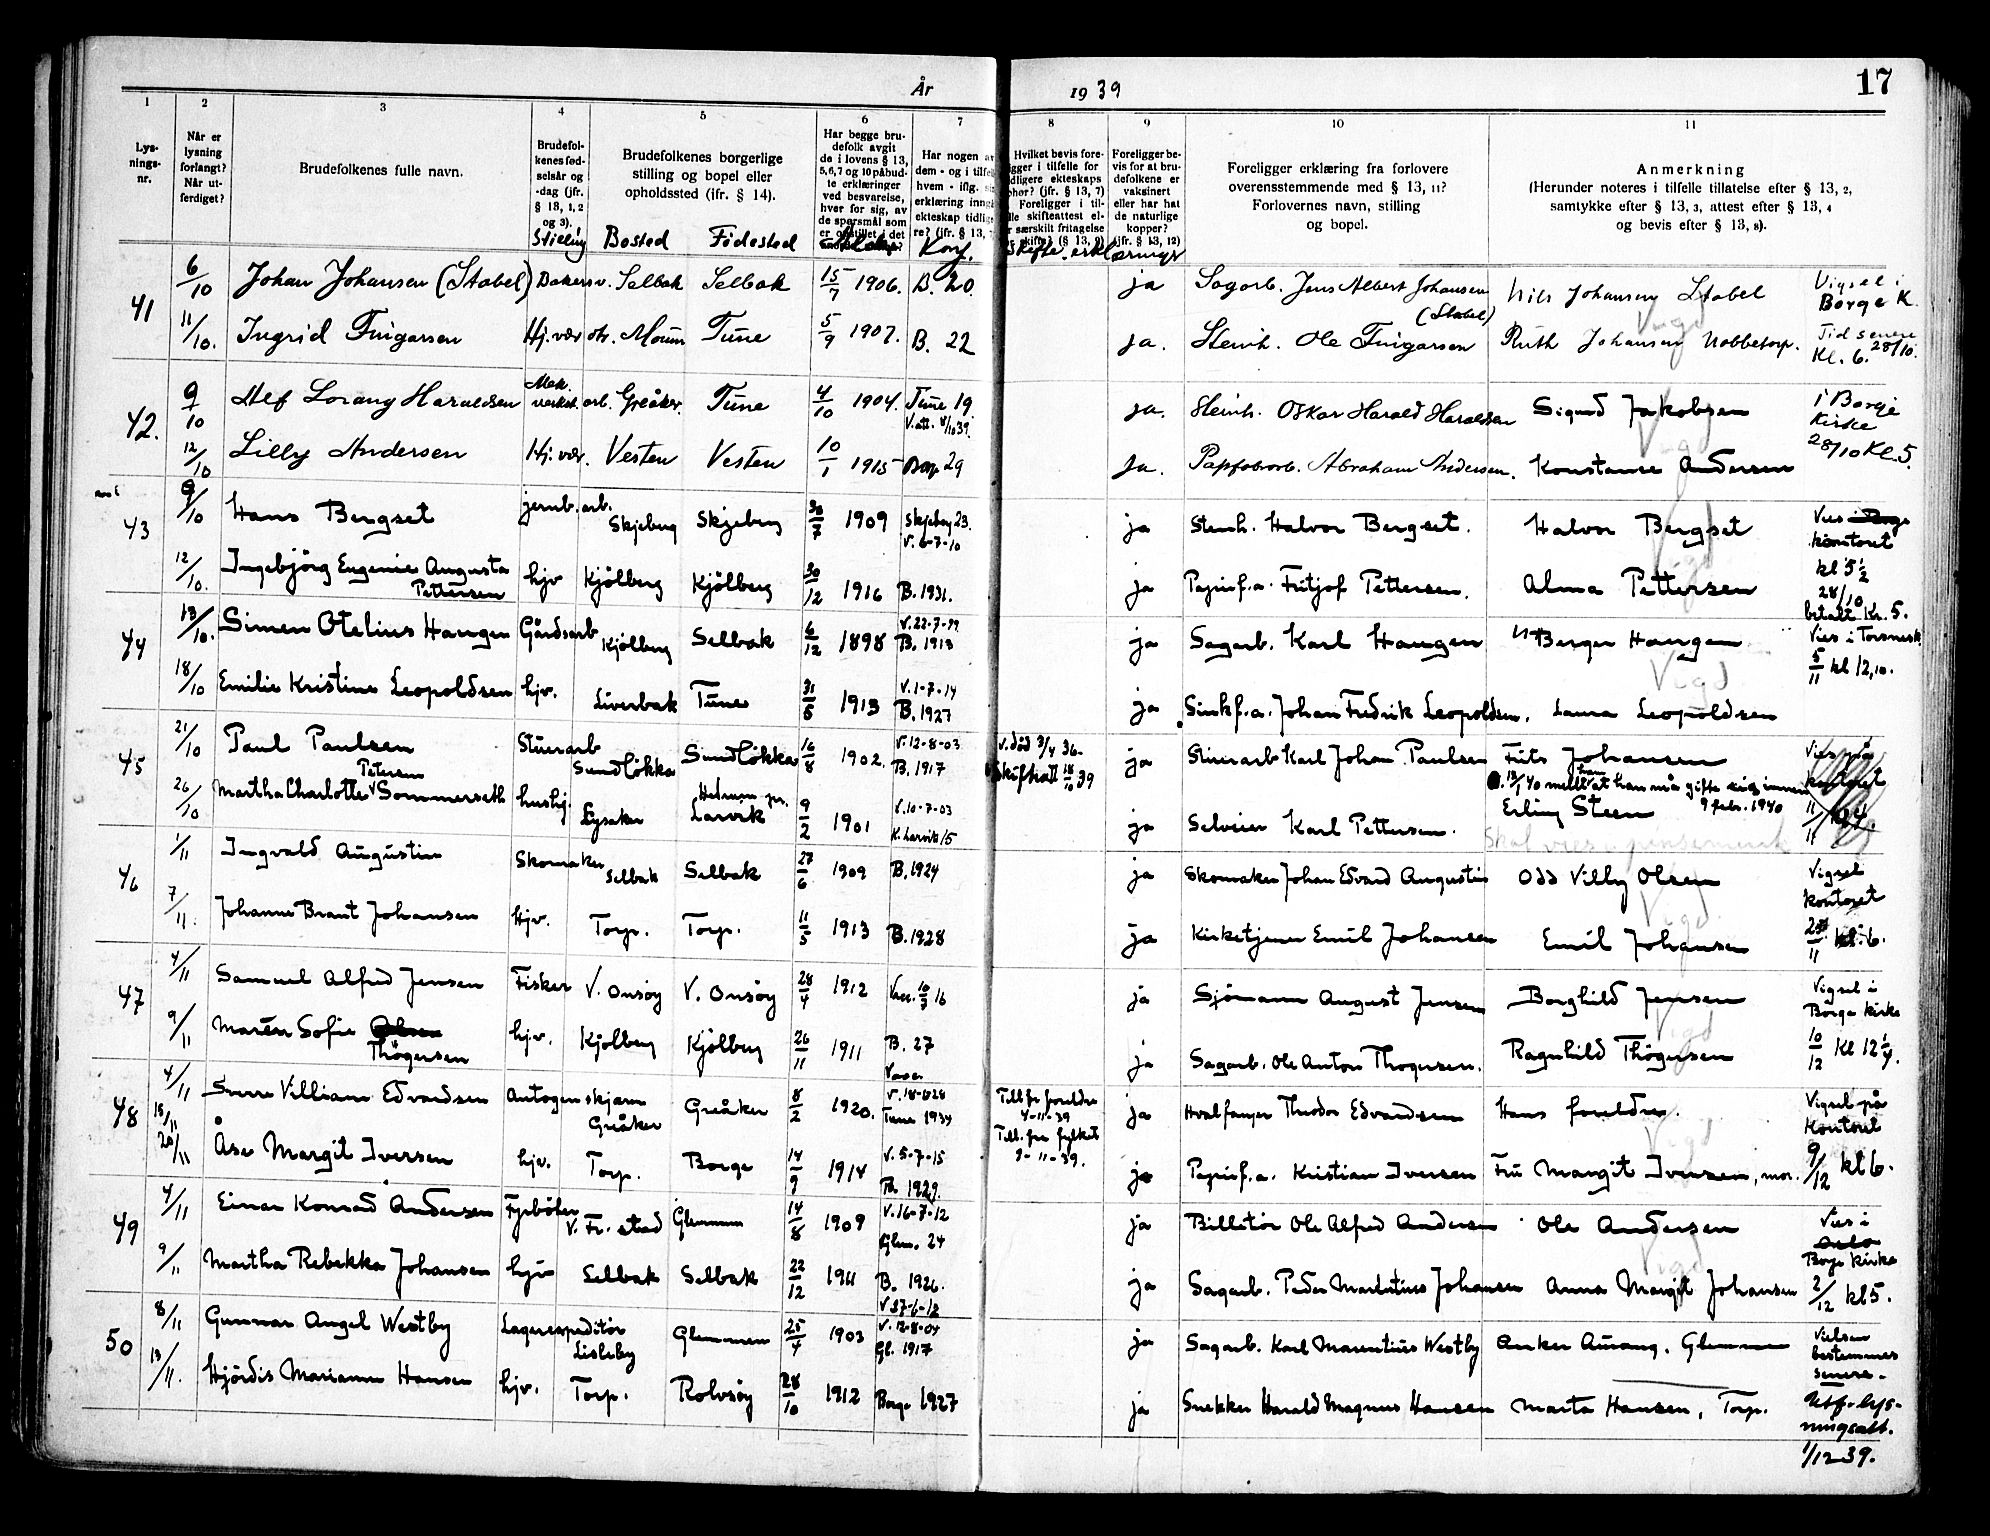 År 1939
17
1
2
3
4
5
6
7
8
9
10
11
Lys-
nings-
nr.
Når er
lysning
forlangt?
Når ut-
ferdiget?
Brudefolkenes fulle navn.
Brudefol-
kenes fød-
selsår og
-dag (jfr.
§ 13, 1, 2
og 3).
Stilling
Brudefolkenes borgerlige
stilling og bopel eller
opholdssted (jfr. § 14).
Bosted Fødested
Har begge bru-
defolk avgit
de i lovens § 13,
5, 6, 7 og 10 påbud-
te erklæringer
ved besvarelse,
hver for sig, av
de spørsmål som
er opstillet i det
Har nogen av
dem - og i tilfelle
hvem - iflg. sin
erklæring inngått
ekteskap tidlige-
re? (jfr. § 13, 7
Konf.
Hvilket bevis fore-
ligger i tilfelle for
tidligere ekteskaps
ophør? (jfr. § 13, 7)
Foreligger i til-
felle skifteattest el-
er særskilt fritagelse
skifte? (§ 13, 9)
Skifte.erklæringer
Foreligger be-
vis for at bru-
defolkene er
vaksinert
eller har hat
de naturlige
kopper?
(jfr. § 13, 12)
Foreligger erklæring fra forlovere
overensstemmende med § 13, 11?
Forlovernes navn, stilling
og bopel.
Anmerkning
(Herunder noteres i tilfelle tillatelse efter § 13, 2,
samtykke efter § 13, 3, attest efter § 13, 4
og bevis efter § 13, 8).
41 6/10 Johan Johansen (Stabel) Bakersv. Selbak Selbak 15/7 1906. B. 20. ja Sagarb. Jens Albert Johansen (Stabel) Nils Johansen Stabel Vigsel i Borge K.
11/10. Ingrid Fingarsen Hj.vær. Moum Tune 5/9 1907. B. 22 ja. Stenh. Ole Fingarsen Ruth Johansen Nobbetorp. Tid senere 28/10. Kl. 6.
Vigd
42. 9/10 Alf Lorang Haraldsen Mek. verkst. arb. Greåker Tune 4/10 1904. Tune 19. ja. Stenh. Oskar Harald Haraldsen Sigurd Jakobsen i Borge Kirke
12/10 Lilly Andersen Hj. vær. Vesten Vesten 10/1 1915 Borge 29 ja. Papfabarb. Abraham Andersen. Konstanse Andersen 28/10 Kl. 5.
Vigd
43 9/10 Hans Bergset jernb. arb. Skjeberg Skjeberg 30/7 1909 Skjeberg 23. V. 6-7-10 ja Stenh. Halvor Bergset. Halvor Bergset Vies i Borge kontoret
12/10. Ingebjörg Eugenie Augusta Pettersen hjv Kjölberg Kjölberg 30/12 1916 B. 1931. ja Papirf.a. Fritjof Pettersen. Alma Pettersen kl 5½ 28/10 betalt Kr. 5.
Vigd
44 13/10. Simen Otelius Haugen Gårdsarb Kjölberg Selbak 6/12 1898 V. 22-7-99 B. 1913 ja Sagarb. Karl Haugen Berger Haugen Vies i Torsnes k.
18/10 Emilie Kristine Leopoldsen hjv. Liverbak Tune 31/5 1913 V. 1-7-14 B. 1927 ja Sinkf.a. Johan Fredrik Leopoldsen. Laura Leopoldsen 5/11 kl 12,10.
Vigd
45 21/10 Paul Paulsen Stuerarb Sundlökka Sundlökka 16/8 1902. V. 12-8-03 B. 1917 v. död 3/4 36- Skifteatt 18/10 39 ja Stuerarb Karl Johan Paulsen Frits Johansen Vies på kontoret
26/10 Martha Charlotte Petersen Sommerseth hushj. Lysaker Hedrum pr. Larvik 9/2 1901 V. 10-7-03 K. Larvik 15 ja Selveier Karl Pettersen. 13/1 40 meldt at han må gifte sig innen 9 febr. 1940 Erling Steen 11/11
46 1/11 Ingvald Augustin Skomaker Selbak Selbak 27/6 1909 B. 1924 ja Skomaker Johan Edvard Augustin Odd Villy Olsen Vigsel kontoret
7/11. Johanne Brant Johansen Hjv. Torp. Torp. 11/5 1913 B. 1928 ja Kirketjener Emil Johansen Emil Johansen 25/11 kl. 6.
Vigd
47 4/11 Samuel Alfred Jensen Fisker V. Onsöy V. Onsöy 28/4 1912 Vacc. 10/5 16 ja Sjömann August Jensen Borghild Jensen Vigsel i Borge kirke
9/11 Maren Sofie Olsen Thögersen hjv. Kjölberg Kjölberg 26/11 1911 B. 27 ja Sagarb. Ole Anton Thogersen. Ragnhild Thögersen 10/12 Kl 12¼.
Vigd
48 4/11 Sverre Villiam Edvardsen Autogenskjærer Greåker Greåker 8/2 1920. Tune 1934 Till. fr foreldre 4-11-39 ja Hvalfanger Theodor Edvardsen Hans foreldre. Vigsel på Kontoret
15/11 20/11 Åse Margit Iversen hjv. Torp. Borge 14/9 1914 V. 5-7-15 B. 1929. Till. fra fylket 9-11-39. ja Papirf.a. Kristian Iversen Fru Margit Iversen, mor. 9/12 kl 6.
Vigd
49 4/11 Einar Konrad Andersen Fyrböter V. Fr. stad Glemmen 14/8 1909 V. 16-7-12 Glem. 24 ja Billettör Ole Alfred Andersen Ole Andersen Vies i Oslo Borge kirke
9/11 Martha Rebekka Johansen hjv Selbak Selbak 22/12 1911 B. 1926. V 27-6-12 ja Sagarb. Peder Martinius Johansen Anna Margit Johansen 2/12 kl 5.
Vigd
50 8/11 Gunnar Angel Westby Lagerexpeditör Lisleby Glemmen 25/4 1903 V. 12-8-04 Gl. 1917 ja Sagarb. Karl Marentius Westby Anker Amang, Glemmen Vielsen bestemmes senere.
13/11. Hjördis Mariann Hansen hjv. Torp. Rolvsöy 28/10 1912 Borge 1927 ja Snekker Harald Magnus Hansen Marta Hansen, Torp. Utf. lys-
ningsatt.
1/12 39.